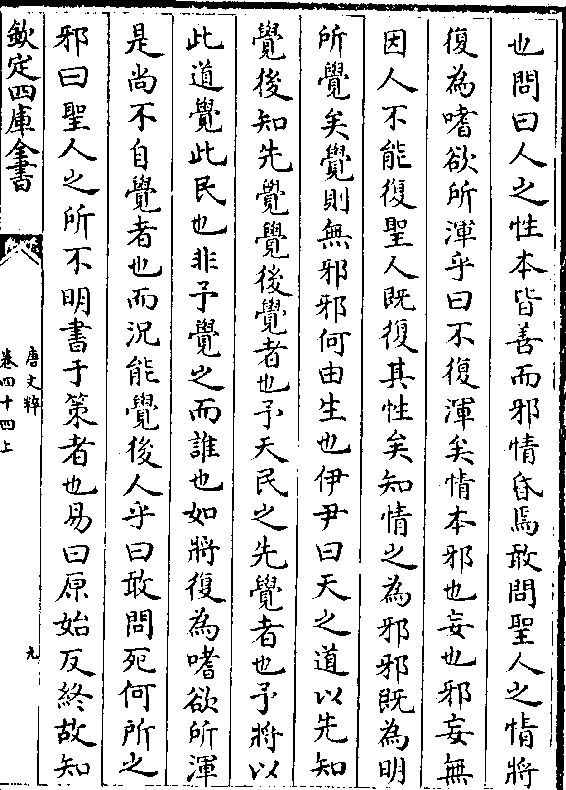 也問曰人之性本皆善而邪情昏焉敢問聖人之情將
復為嗜欲所渾乎曰不復渾矣情本邪也妄也邪妄無
因人不能復聖人既復其性矣知情之為邪邪既為明
所覺矣覺則無邪邪何由生也伊尹曰天之道以先知
覺後知先覺覺後覺者也予天民之先覺者也予將以
此道覺此民也非予覺之而誰也如將復為嗜欲所渾
是尚不自覺者也而況能覺後人乎曰敢問死何所之
邪曰聖人之所不明書于策者也易曰原始反終故知
欽定四庫全書
唐文粹
卷四十四上
九